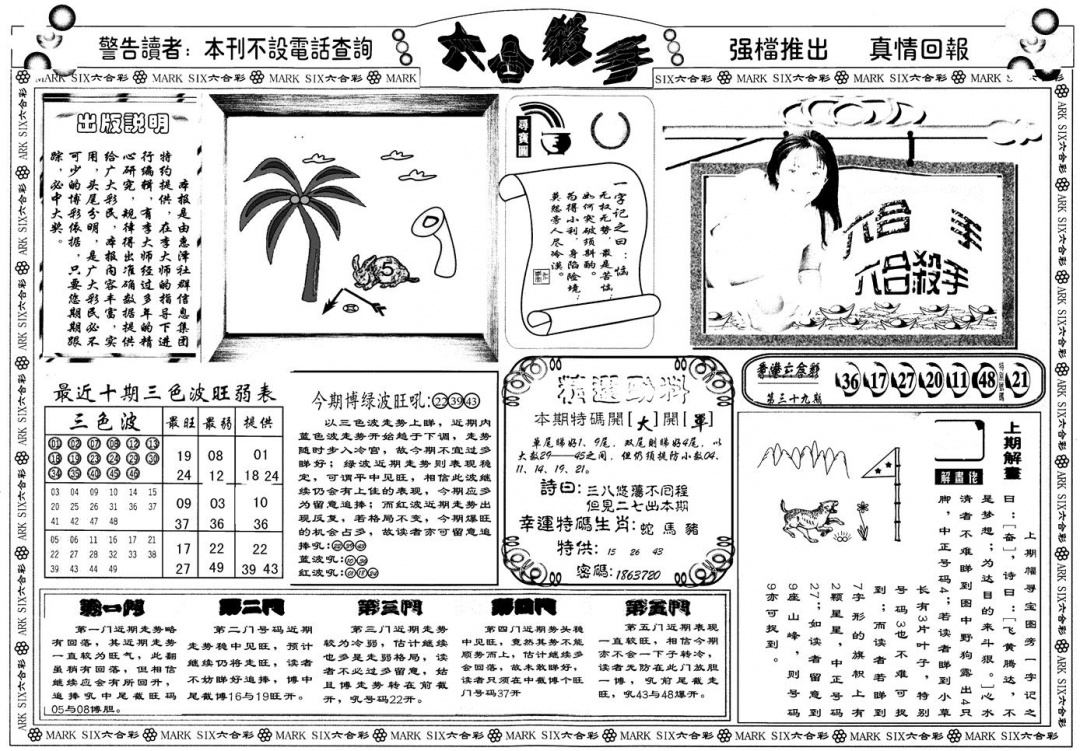 警告讀者：本刊不設電話查詢
六合殺手
强檔推出 真情回報
MARK SIX六合彩 MARK SIX六合彩 MARK SIX六合彩 MARK SIX六合彩 MARK
SIX六合彩 MARK SIX六合彩 MARK SIX六合彩 MARK SIX六合彩 MARK
出版説明
本报是由惠泽社群信息集团
特约提供，在李大师的指导下进
行编辑，有李大师经过多年的精
心研究，规律得出准确数据提供
给广大彩民，本报内容丰富，实
用，头尾分明，是广大彩民必不
可少的博彩依据，只要您期期跟
踪，必中大奖。
5
尋寶圖
一字记之曰：怅
无权无势，最是苦怅
如何突破须斟酌。
为得小利，身陷险境
莫怨旁人尽冷漠。
六合 手
六合殺手
香港六合彩
第三十九期
36 17 27 20 11 48
特别號碼
21
最近十期三色波旺弱表
三色波 最旺 最弱 提供
01 02 07 08 12 13
18 19 23 24 29 30
34 35 40 45 46
19 08 01
24 12 18 24
03 04 09 10 14 15
20 25 26 31 36 37
41 42 47 48
09 03 10
37 36 36
05 06 11 16 17 21
22 27 28 32 33 38
39 43 44 49
17 22 22
27 49 39 43
今期博绿波旺吼：22 39 43
以三色波走势上睇，近期内
蓝色波走势开始趋于下调，走势
随时步入冷宫，故今期不宜过多
睇好；绿波近期走势则表现稳
定，可谓平中见旺，相信此波继
续仍会有上佳的表现，今期应多
为留意追捧；而红波近期走势出
现反复，若格局不变，今期爆旺
的机会占多，故读者亦可留意追
捧吼：22 39 43
蓝波吼：10 36
红波吼：01 18 24
精選動料
本期特碼開[大]開[單]
单尾睇好1、9尾，双尾则睇好4尾，以
大数29——45之间，但仍须提防小数04、
11、14、19、21。
詩曰：三八悠蕩不同程
但見二七出本期
幸運特碼生肖：蛇 馬 豬
特供：15 26 43
密碼：1863720
上期解畫
解畫佬
上期幅寻宝图旁一字记之
曰：[奋]，诗曰：[飞黄腾达，不
是梦想；为达目的来斗狠。]心水
清者不难睇到图中野狗露出4只
脚，中正号码4；若读者睇到小草
长有3片叶子，特别
号码3也不难可捉
到；而读者若睇到
7字形的旗帜上有
2颗星星，中正号码
27；如读者留意到
9座山峰，则号码
9亦可捉到。
第一門
第一门近期走势略
有回落，其近期走势
一直较为旺气，此翻
虽稍有回落，但相信
继续应会有所回升，
追捧吼中尾截旺码
05与08博胆。
第二門
第二门号码近期
走势稳中见旺，预计
继续仍将走旺，读者
不妨睇好追捧，博中
尾截博16与19旺开。
第三門
第三门近期走势
较为冷弱，估计继续
也多是走弱格局，读
者不必过多留意，姑
且博走势转在前截
开，吼号码22开。
第四門
第四门近期势头稳
中见旺，竟然其势不能
顺势而上，估计继续多
会回落，故未敢睇好，
读者只须在中截博个旺
门号码37开
第五門
第五门近期表现
一直较旺，相信今期
亦不会一下子转冷，
读者无防在此门放胆
一博，吼前尾截走
旺，吼43与48爆开。
MARK SIX六合彩 MARK SIX六合彩 MARK SIX六合彩 MARK SIX六合彩 MARK SIX六合彩 MARK SIX六合彩 MARK SIX六合彩 MARK SIX六合彩 MARK SIX六合彩